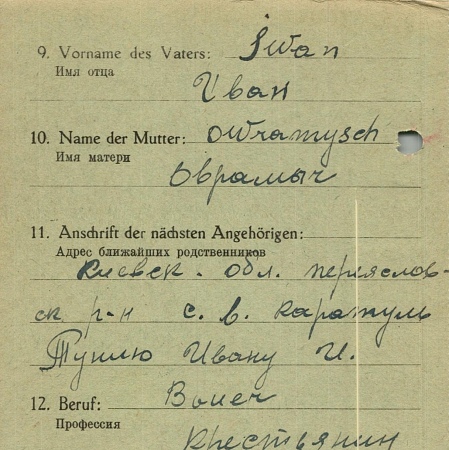 9. Vorname des Vaters: Iwan
Имя отца
Иван
10. Name der Mutter: Owramysch
Имя матери
Оврамыч
11. Anschrift der nächsten Angehörigen:
Адрес ближайших родственников
Киевск. обл. переяслов-
ск р-н с. в. каратуль
Ивану И.
12. Beruf: Bauer
Профессия
Крестьянин